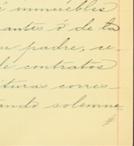 é inmuebles
antes ó de la
su padre, ce-
de contratos
ituras corres-
ando solemne